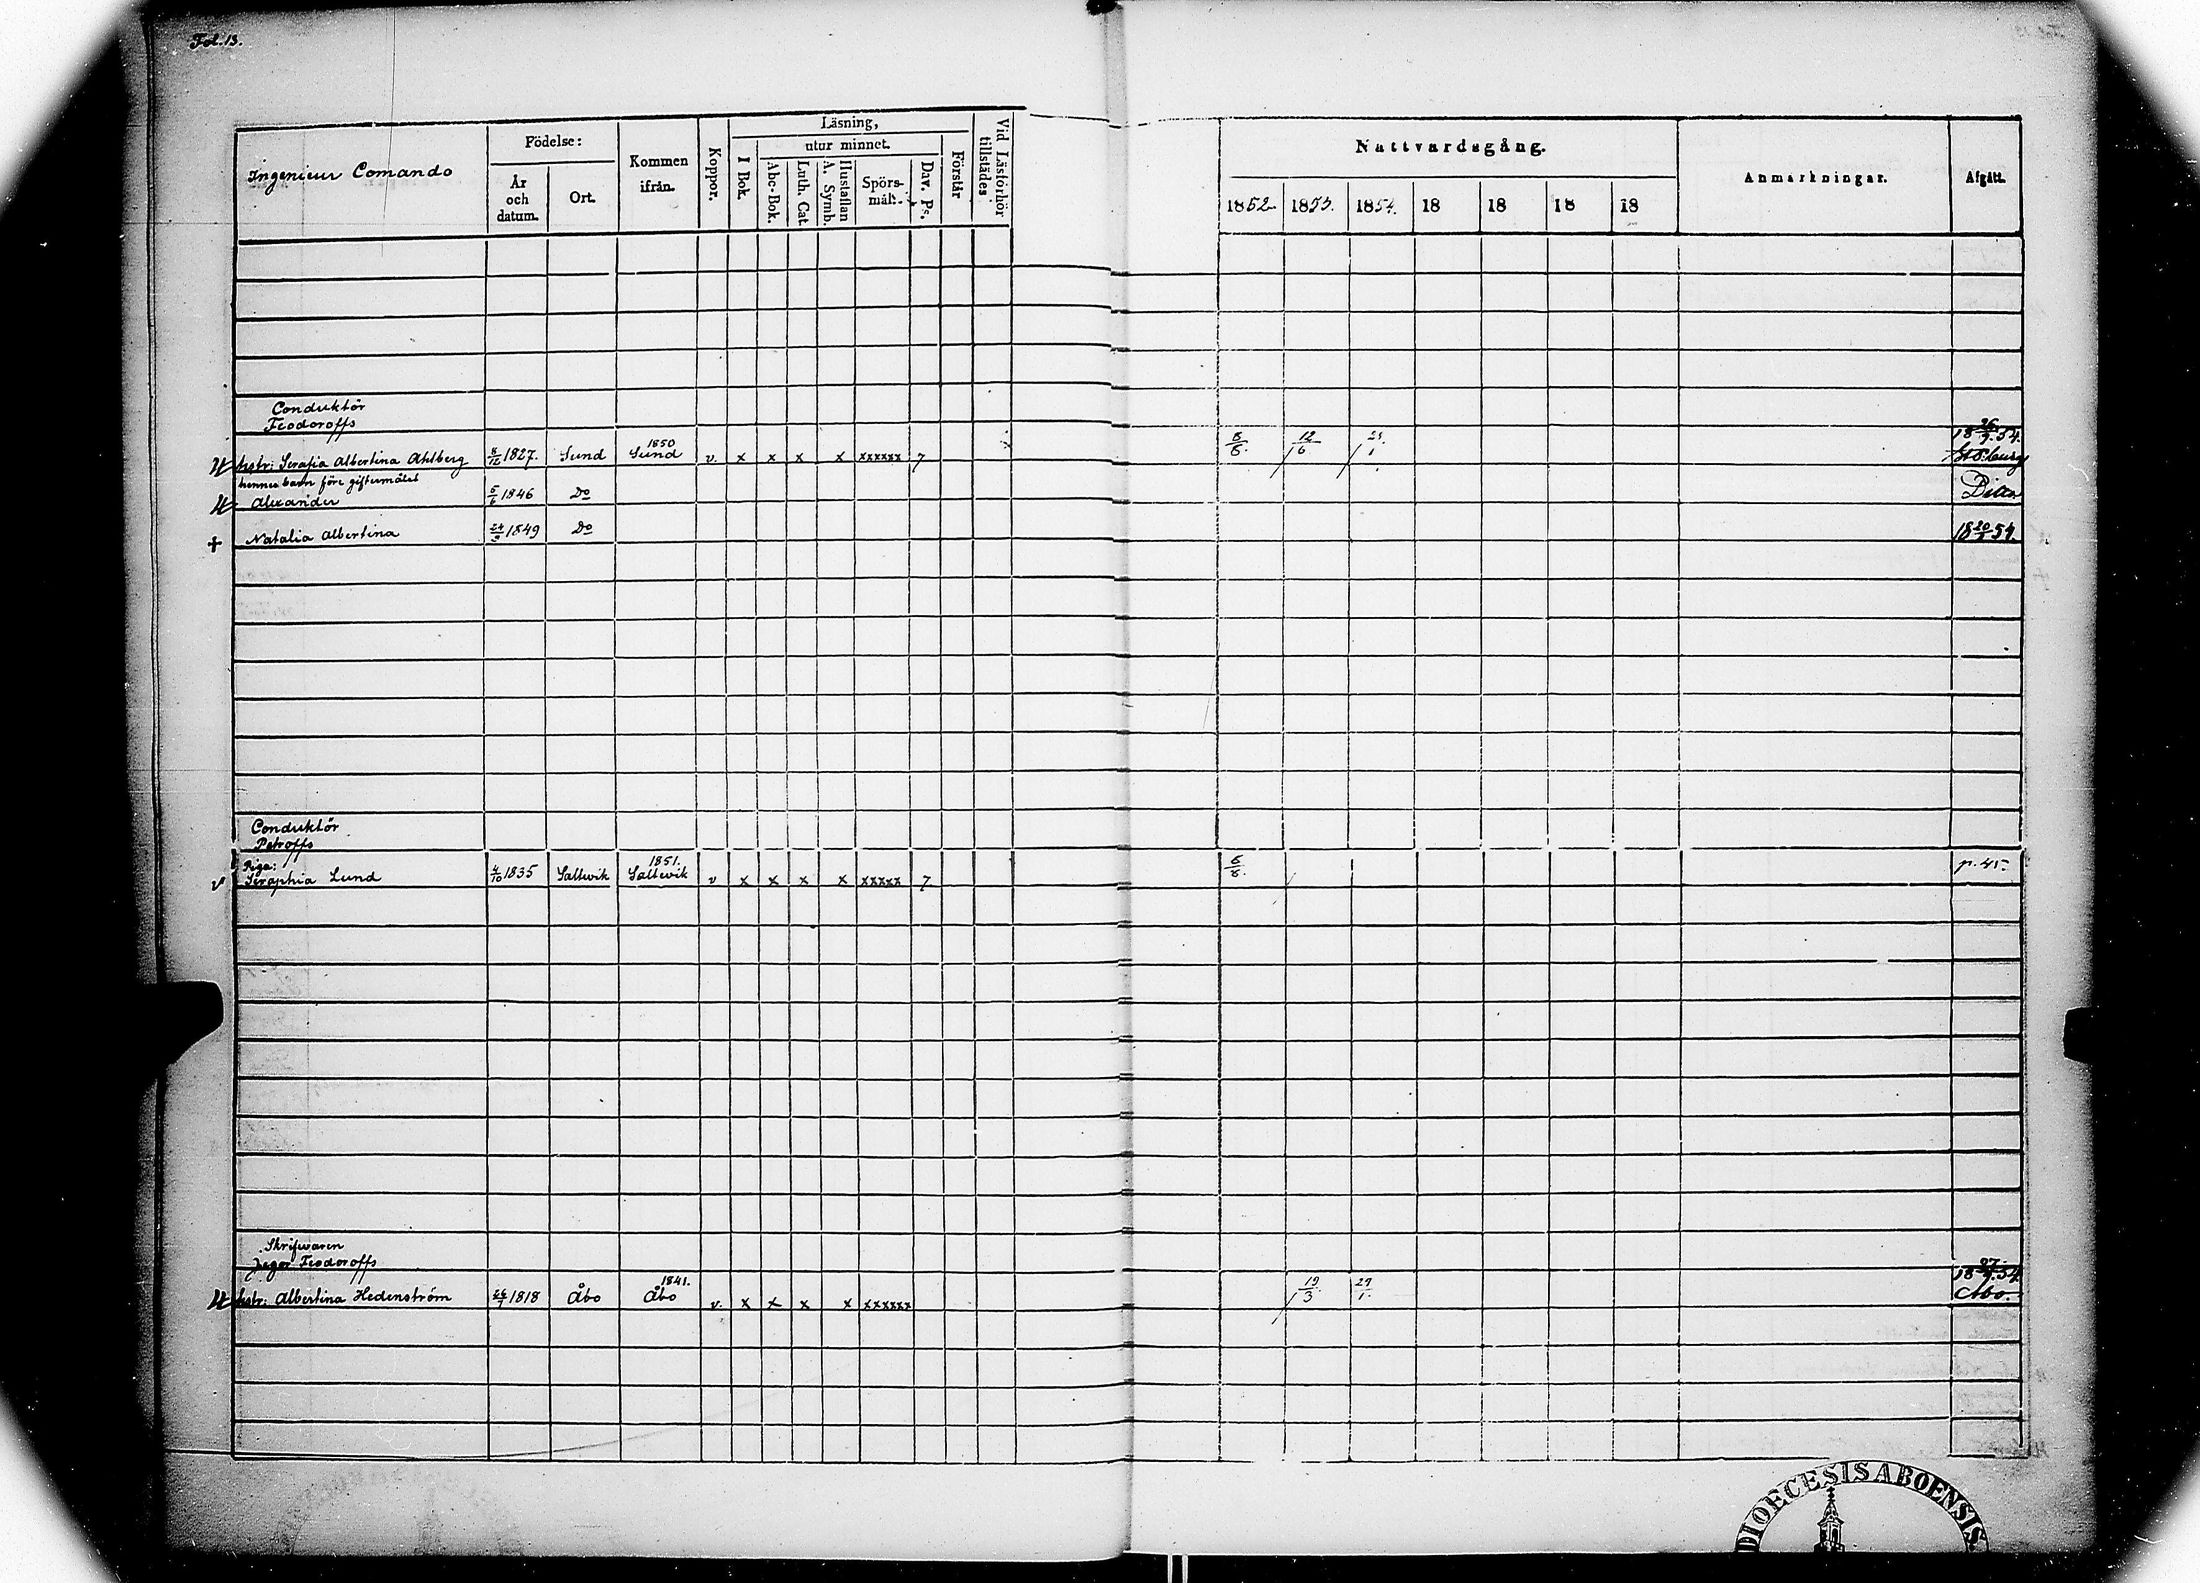 Fol. 13.
Ingenieur Comando
Födelse:
År och datum.
Ort.
Kommen ifrån.
Koppor.
Läsning,
I Bok.
utur minnet.
Abc-Bok.
Luth. Cat.
Hustaflan A. Symb.
Spörs-mål.
Dav. Ps.
Förstår
Vid Läsförhör tillstädes
Nattvardsgång.
1852. 1853. 1854. 18 18 18 18
Anmärkningar.
Afgått.
Conduktör
Feodoroffs
hstr: Serafia Albertina Ahlberg 8/12 1827. Sund 1850 Sund v. x x x x xxxxxx 7 8/6. 12/6 1854. St P:burg
hennes barn före giftermålet
Alexander 5/6 1846 Do Ditto
+ Natalia Albertina 24/9 1849 Do 18 54.
Conduktör
Petroffs
Piga:
v Seraphia Lund 4/10 1835 Saltvik 1851. Saltvik v x x x x xxxxx 7. 6/6. p. 45
Skrifvaren
Jegor Feodoroffs
hstr: Albertina Hedenström 26/7 1818 Åbo 1841. Åbo v. x x x x xxxxxx 19/3. 29/1. 18 27/9. 54 Åbo.
DIOECESIS ABOENSIS